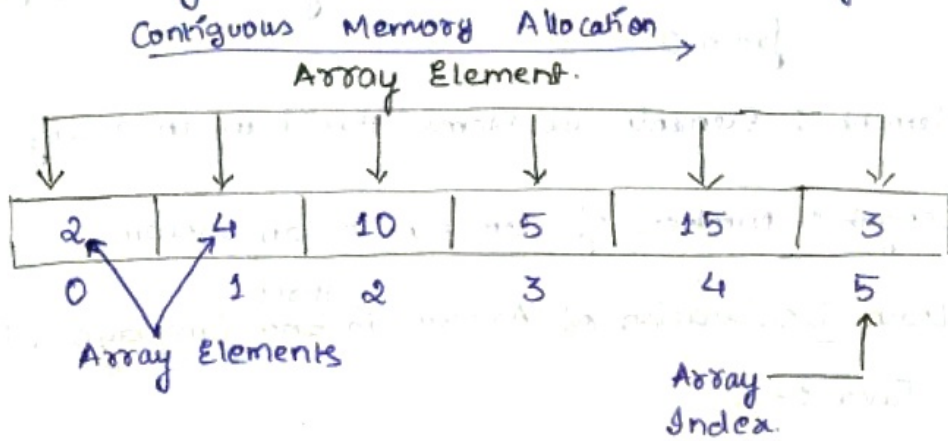 Contiguous Memory Allocation
Array Element.
2 4 10 5 15 3
0 1 2 3 4 5
Array Elements
Array
Index.